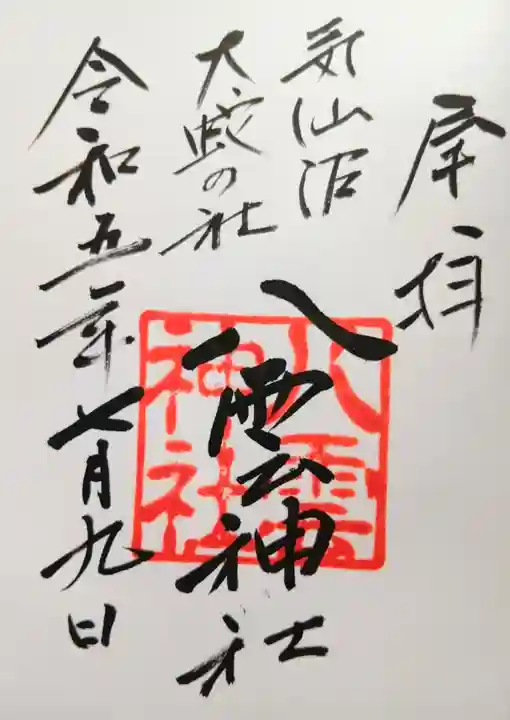 奉拝
気仙沼
大蛇の社
八雲神社
八雲
神社
令和五年七月九日